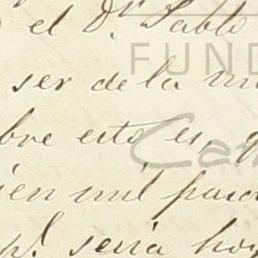 el Dr Pablo
FUND
ser de la
bre esto es,
Cam
ien mil
seria hoy